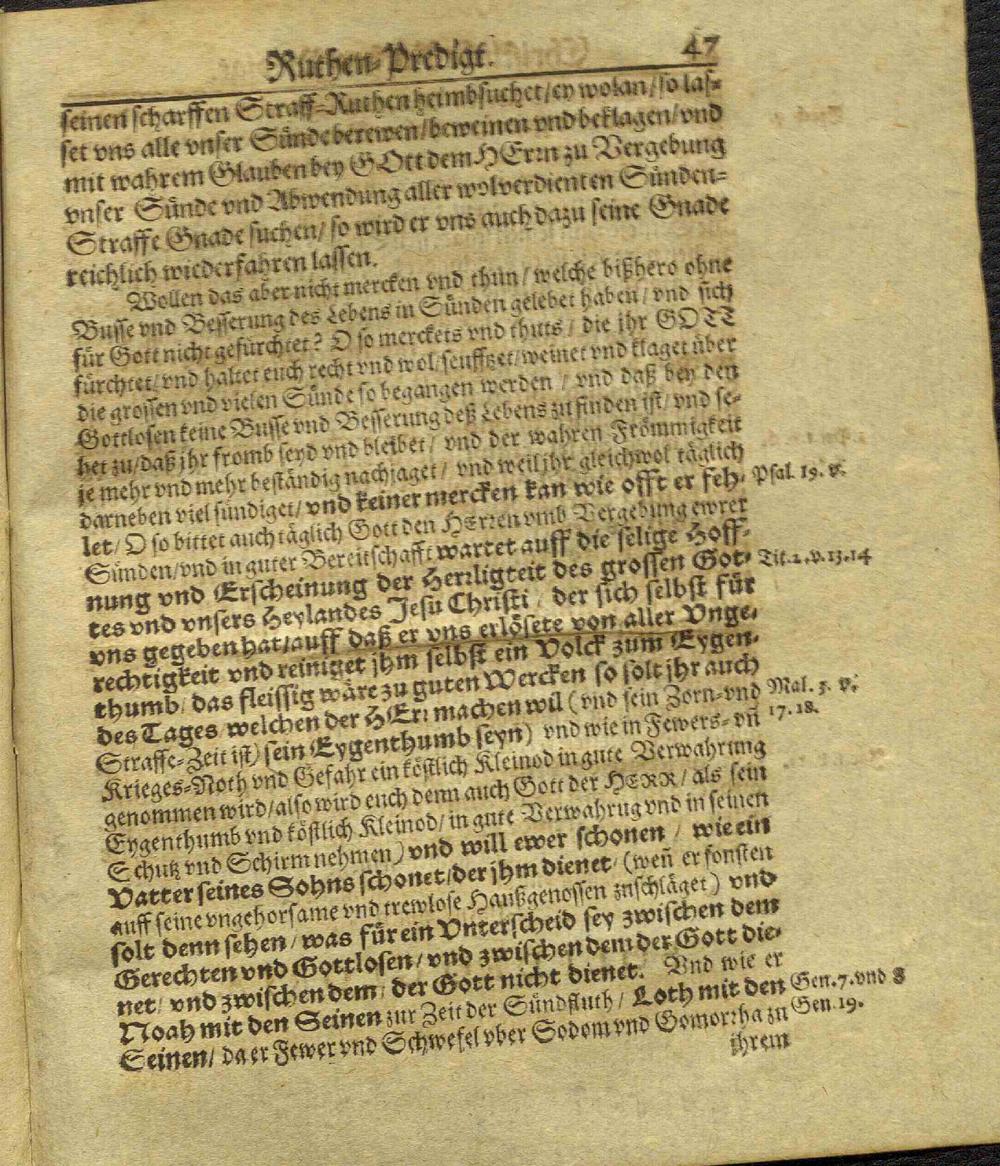 Ruthen-Predigt. 47
seinen scharffen Straff-Ruthen heimbsuchet/ ey wolan/ so las-
set vns alle vnser Sünde berewen/ beweinen vnd beklagen/ vnd
mit wahrem Glauben bey GOtt dem HErrn zu Vergebung
vnser Sünde vnd Abwendung aller wolverdienten Sünden-
Straffe Gnade suchen/ so wird er vns auch dazu seine Gnade
reichlich wiederfahren lassen.
Wollen das aber nicht mercken vnd thun/ welche bißhero ohne
Busse vnd Besserung des Lebens in Sünden gelebet haben/ vnd sich
für Gott nicht gefürchtet? O so merckets vnd thuts/ die jhr GOTT
fürchtet/ vnd haltet euch recht vnd wol/ seufftzet/ weinet vnd klaget über
die grossen vnd vielen Sünde so begangen werden/ vnd daß bey den
Gottlosen keine Busse vnd Besserung deß Lebens zu finden ist/ vnd se-
het zu/ daß jhr fromb seyd vnd bleibet/ vnd der wahren Frömmigkeit
je mehr vnd mehr beständig nachjaget/ vnd weil jhr gleichwol täglich
darneben viel sündiget/ vnd keiner mercken kan wie offt er feh- Psal. 19. v.
let/ O so bittet auch täglich Gott den HErren vmb Vergebung ewrer
Sünden/ vnd in guter Bereitschafft wartet auff die selige Hoff-
nung vnd Erscheinung der Herrligkeit des grossen Got- Tit. 2. v. 13. 14
tes vnd vnsers Heylandes Jesu Christi/ der sich selbst für
vns gegeben hat/ auff daß er vns erlösete von aller Vnge-
rechtigkeit vnd reiniget jhm selbst ein Volck zum Eygen-
thumb/ das fleissig wäre zu guten Wercken so solt jhr auch
des Tages/ welchen der HErr machen wil (vnd sein Zorn- vnd Mal. 3. v.
Straffe-Zeit ist) sein Eygenthumb seyn) vnd wie in Fewers- vñ 17. 18.
Krieges-Noth vnd Gefahr ein köstlich Kleinod in gute Verwahrung
genommen wird/ also wird euch denn auch Gott der HERR/ als sein
Eygenthumb vnd köstlich Kleinod/ in gute Verwahrug vnd in seinen
Schutz vnd Schirm nehmen) vnd will ewer schonen/ wie ein
Vatter seines Sohns schonet/ der jhm dienet/ (weñ er sonsten
auff seine vngehorsame vnd trewlose Haußgenossen zuschläget) vnd
solt denn sehen/ was für ein Vnterscheid sey zwischen dem
Gerechten vnd Gottlosen/ vnd zwischen dem der Gott die-
net/ vnd zwischen dem/ der Gott nicht dienet. Vnd wie er
Noah mit den Seinen zur Zeit der Sündfluth/ Loth mit den Gen. 7. vnd 8
Seinen/ da er Fewer vnd Schwefel vber Sodom vnd Gomorrha zu Gen. 19.
jhrem